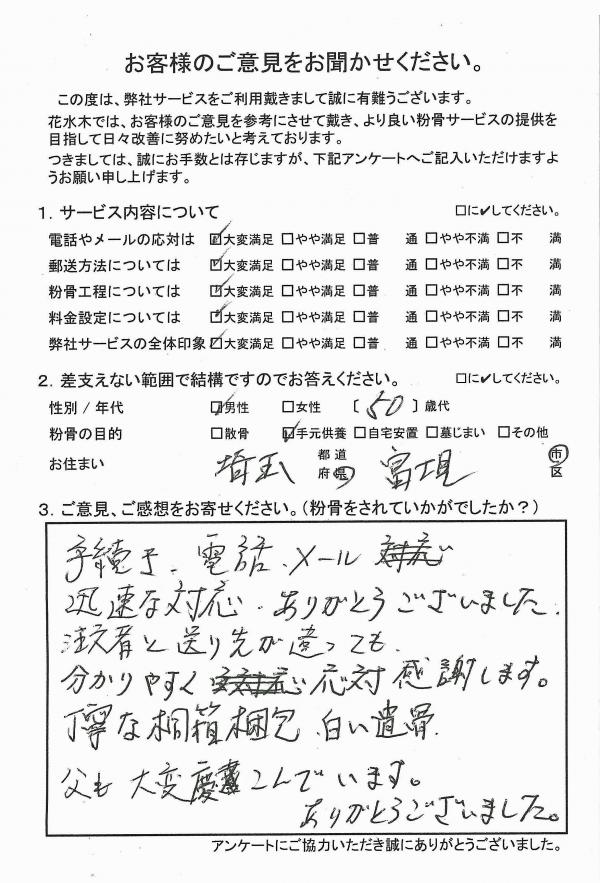 お客様のご意見をお聞かせください。
この度は、弊社サービスをご利用戴きまして誠に有難うございます。
花水木では、お客様のご意見を参考にさせて戴き、より良い粉骨サービスの提供を
目指して日々改善に努めたいと考えております。
つきましては、誠にお手数とは存じますが、下記アンケートへご記入いただけますよ
うお願い申し上げます。
1. サービス内容について □に✔してください。
電話やメールの応対は ☑大変満足 □やや満足 □普 通 □やや不満 □不 満
郵送方法については ☑大変満足 □やや満足 □普 通 □やや不満 □不 満
粉骨工程については ☑大変満足 □やや満足 □普 通 □やや不満 □不 満
料金設定については ☑大変満足 □やや満足 □普 通 □やや不満 □不 満
弊社サービスの全体印象 ☑大変満足 □やや満足 □普 通 □やや不満 □不 満
2. 差支えない範囲で結構ですのでお答えください。 □に✔してください。
性別 / 年代 ☑男性 □女性 〔 50 〕歳代
粉骨の目的 □散骨 ☑手元供養 □自宅安置 □墓じまい □その他
お住まい 埼玉 都道府県 市区
3. ご意見、ご感想をお寄せください。(粉骨をされていかがでしたか?)
手続き、電話、メール
迅速な対応、ありがとうございました。
注文者と送り先が違っても、
分かりやすく 応対 感謝します。
丁寧な桐箱梱包、白い遺骨、
父も 大変慶こんでいます。
ありがとうございました。
アンケートにご協力いただき誠にありがとうございました。